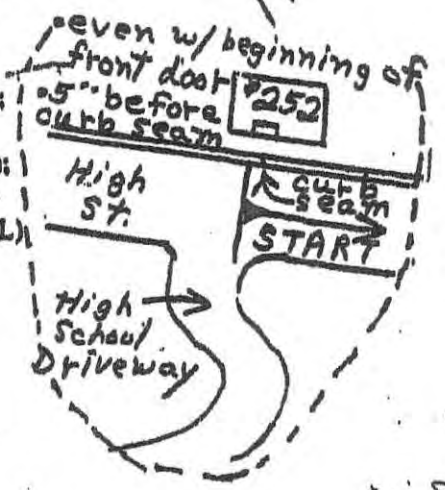 •even w/ beginning of
front door
•5" before
curb seam
#252
High
St.
curb
seam
START
High
School
Driveway